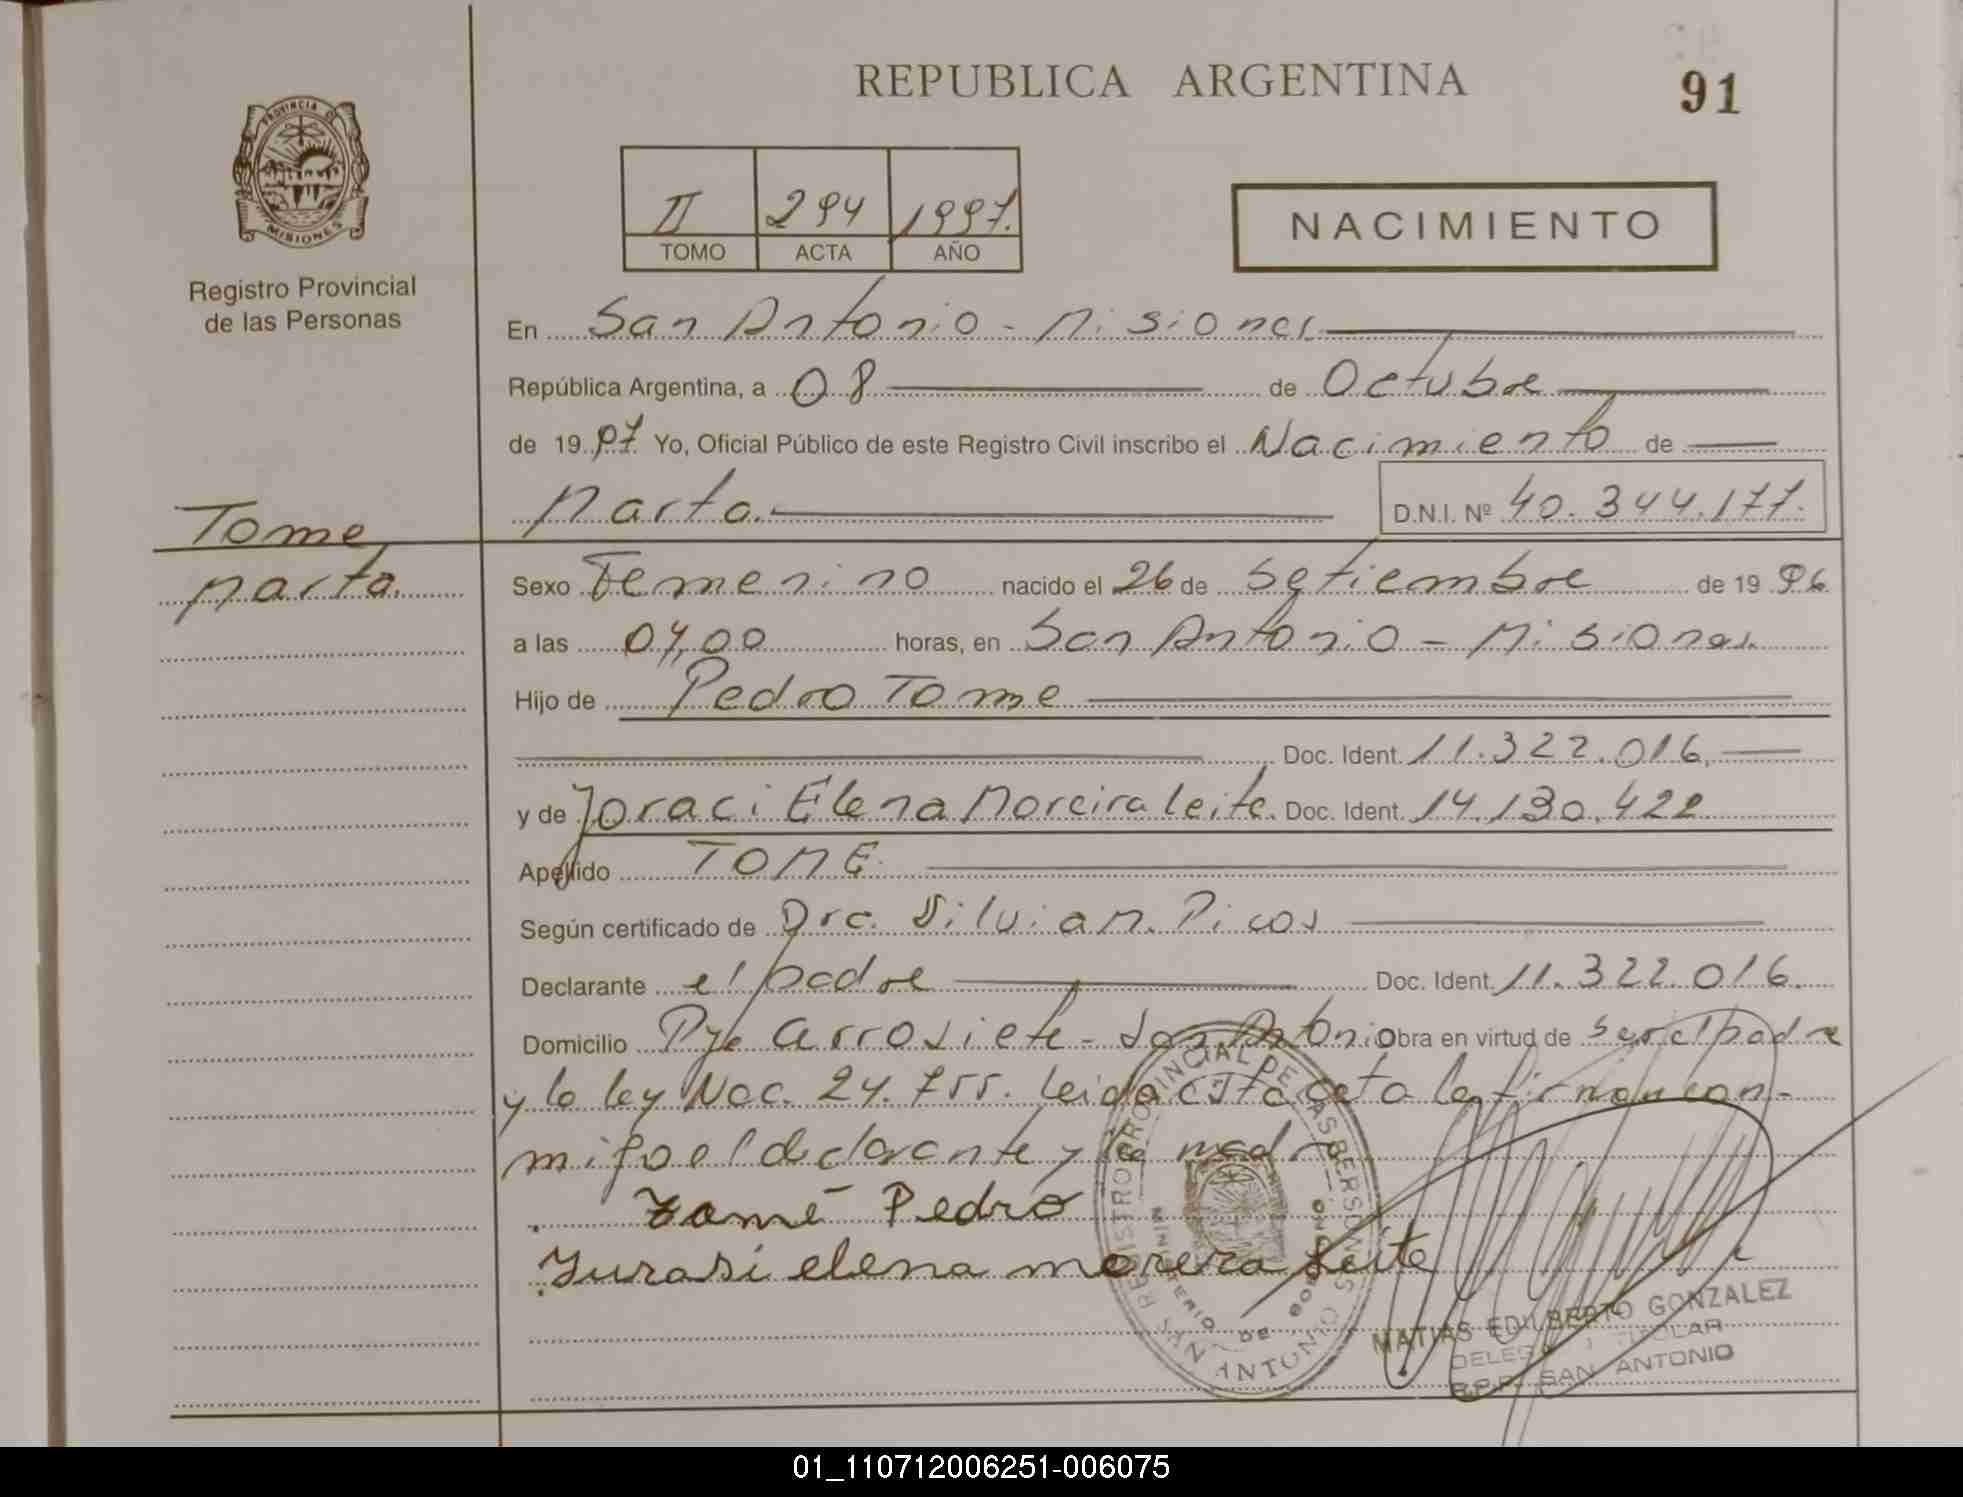 REPUBLICA ARGENTINA
91
PROVINCIA DE MISIONES
Registro Provincial
de las Personas
II 294 1997.
TOMO ACTA AÑO
NACIMIENTO
En San Antonio - Misiones.
República Argentina, a 08 de Octubre
de 1997 Yo, Oficial Público de este Registro Civil inscribo el Nacimiento de
Marta. D.N.I. Nº 40.344.177.
Tome
Marta.
Sexo Femenino nacido el 26 de Setiembre de 1996
a las 04,00 horas, en San Antonio - Misiones.
Hijo de Pedro Tome
Doc. Ident. 11.322.016,
y de Joraci Elena Moreira leite. Doc. Ident. 14.130.422
Apellido TOME
Según certificado de Dra. Silvia M. Picos
Declarante el padre Doc. Ident. 11.322.016.
Domicilio Pje Arrosiete - San Antonio Obra en virtud de ser el padre
y la ley Nac. 24.755. Leida esta acta la firman con-
migo el declarante y la madre
Tomé Pedro
Yurasi elena morera Leite
REGISTRO PROVINCIAL DE LAS PERSONAS
MINISTERIO DE GOBIERNO
SAN ANTONIO
MATIAS EDILBERTO GONZALEZ
TITULAR
R.P.P. SAN ANTONIO
01_110712006251-006075